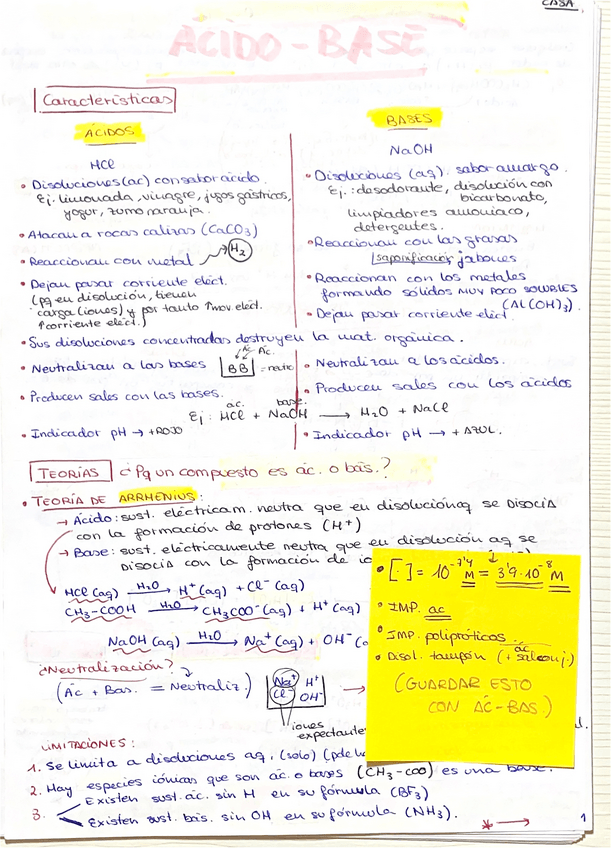 CASA
ÁCIDO-BASE
Características
ÁCIDOS
HCl
• Disoluciones (ac) con sabor ácido.
Ej. limonada, vinagre, jugos gástricos,
yogur, zumo naranja.
• Atacan a rocas calizas (CaCO3)
• Reaccionan con metal → H2
• Dejan pasar corriente eléct.
(pq en disolución, tienen
carga (iones) y por tanto ↑mov. eléct.
↑corriente eléct.)
BASES
NaOH
• Disoluciones (aq). sabor amargo.
Ej.: desodorante, disolución con
bicarbonato,
limpiadores amoniaco,
detergentes.
• Reaccionan con las grasas
saponificación jabones
• Reaccionan con los metales
formando sólidos MUY POCO SOLUBLES
(Al(OH)3).
• Dejan pasar corriente eléct.
• Sus disoluciones concentradas destruyen la mat. orgánica.
• Neutralizan a las bases
Ac Ac.
BB = neutro
• Neutralizan a los ácidos.
• Producen sales con las bases.
• Producen sales con los ácidos
ac. base.
Ej: HCl + NaOH → H2O + NaCl
• Indicador pH → + ROJO
• Indicador pH → + AZUL.
TEORÍAS ¿Pq un compuesto es ác. o bás.?
• TEORÍA DE ARRHENIUS:
→ Ácido: sust. eléctricam. neutra que en disolución aq se DISOCIA
con la formación de protones (H+)
→ Base: sust. eléctricamente neutra que en disolución aq se
DISOCIA con la formación de
HCl (aq) H2O → H+ (aq) + Cl- (aq)
CH3-COOH H2O → CH3COO- (aq) + H+ (aq)
NaOH (aq) H2O → Na+ (aq) + OH-
• [ ] = 10^-7'4 M = 3'9·10^-8 M
• IMP. ac
• IMP. polipróticos
• Disol. tampón (ác + sal conj.)
(GUARDAR ESTO
CON ÁC-BAS.)
¿Neutralización?
(Ác + Bas. = Neutraliz.)
Na+ H+
Cl- OH-
→
iones
LIMITACIONES:
1. Se limita a disoluciones aq. (solo)
2. Hay especies iónicas que son ác. o bases (CH3-COO) es una base.
3. Existen sust. ác. sin H en su fórmula (BF3)
Existen sust. bás. sin OH en su fórmula (NH3).
* →
1